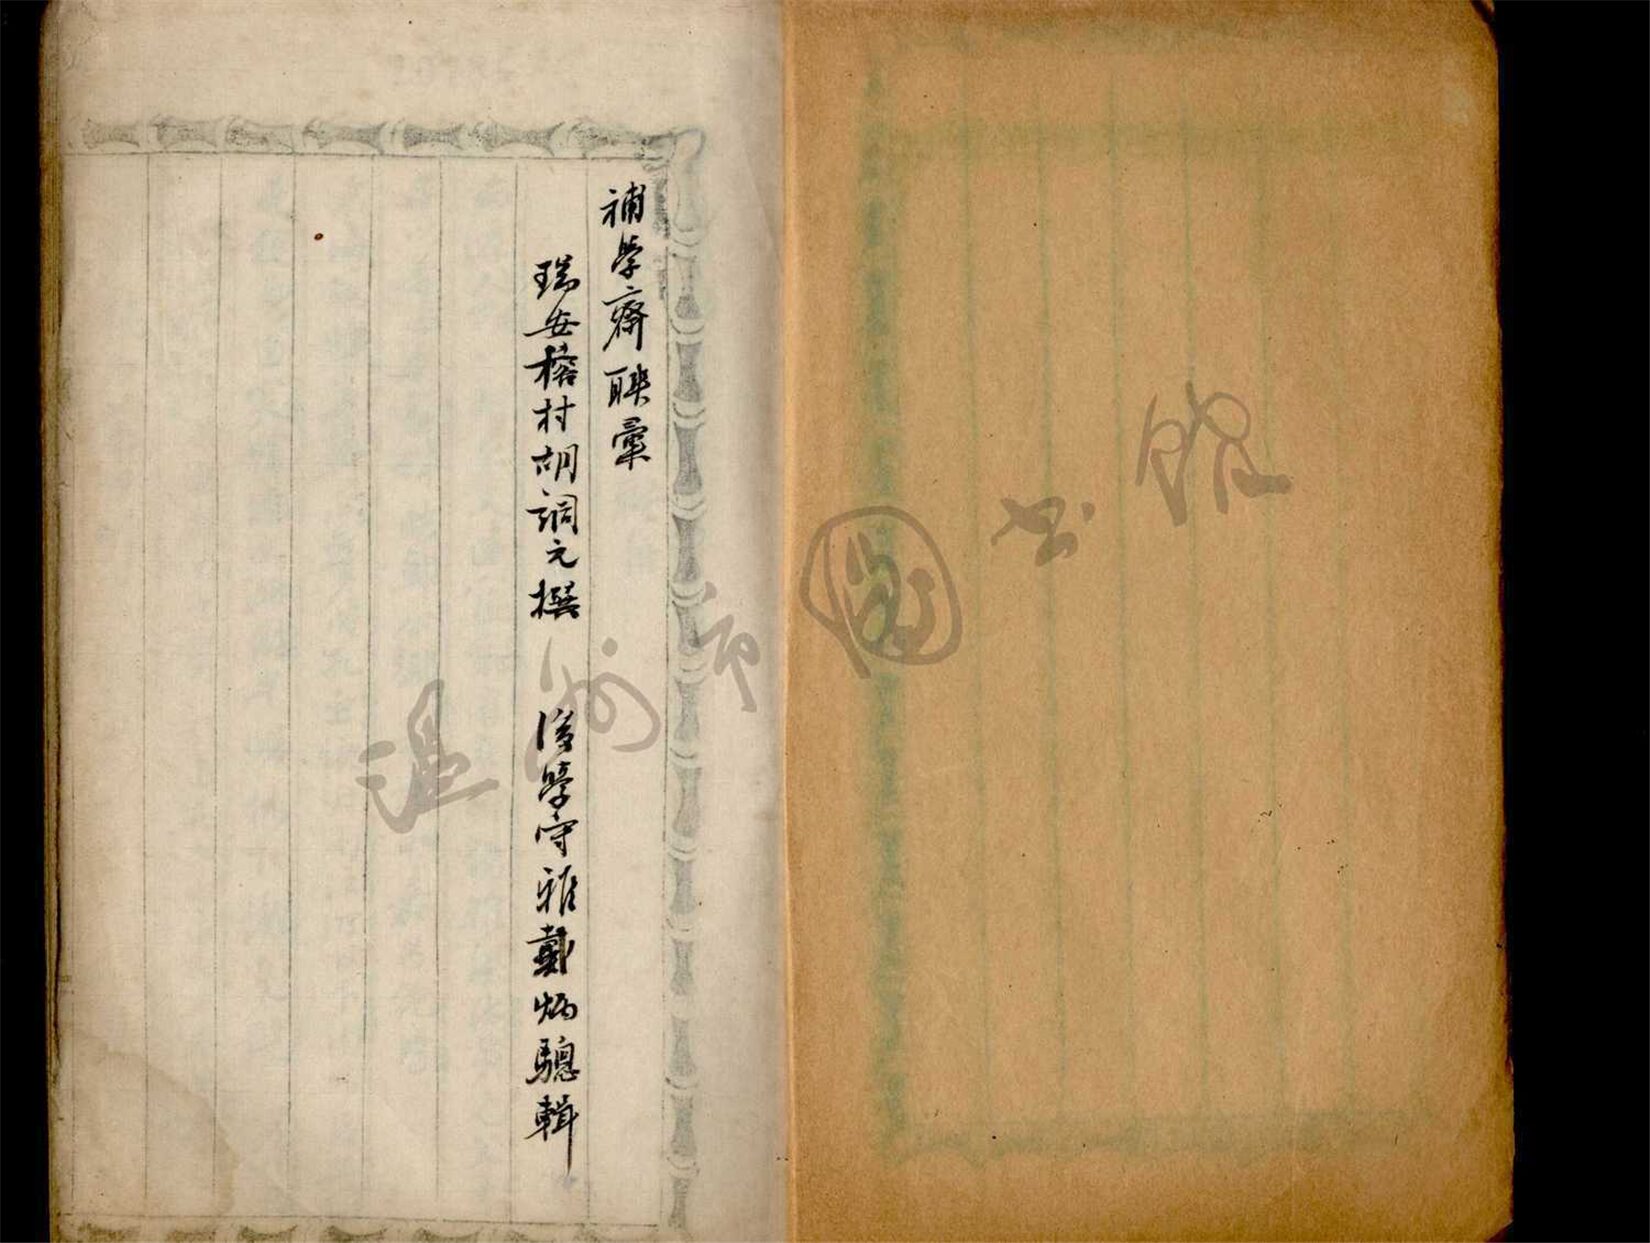 補學齋聯彙
瑞安榕村胡調元撰 後學守雅戴炳驄輯
溫州市圖书館